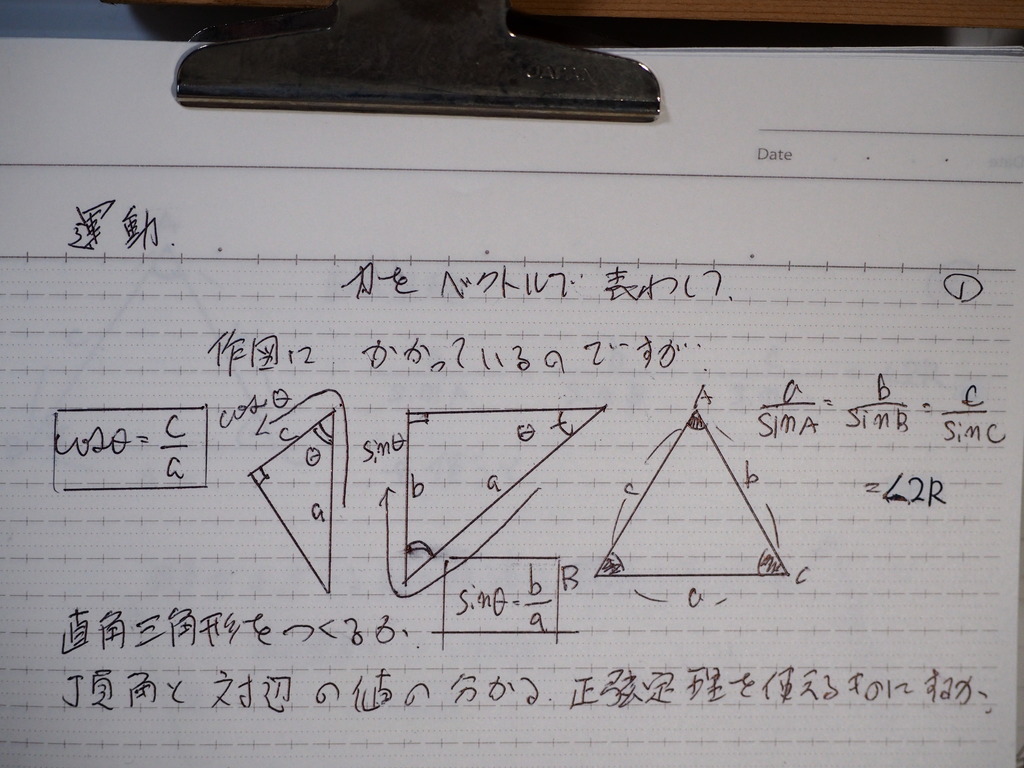 Date
運動.
力を ベクトルで 表わして.
①
作図に かかっているのですが.
cosθ = c/a
cosθ
c
θ
a
sinθ
b
a
θ
sinθ = b/a
A
c
b
B
a
C
a/sinA = b/sinB = c/sinC
= ∠2R
直角三角形をつくるか.
頂角と対辺の値の分かる. 正弦定理を使えるものにするか.